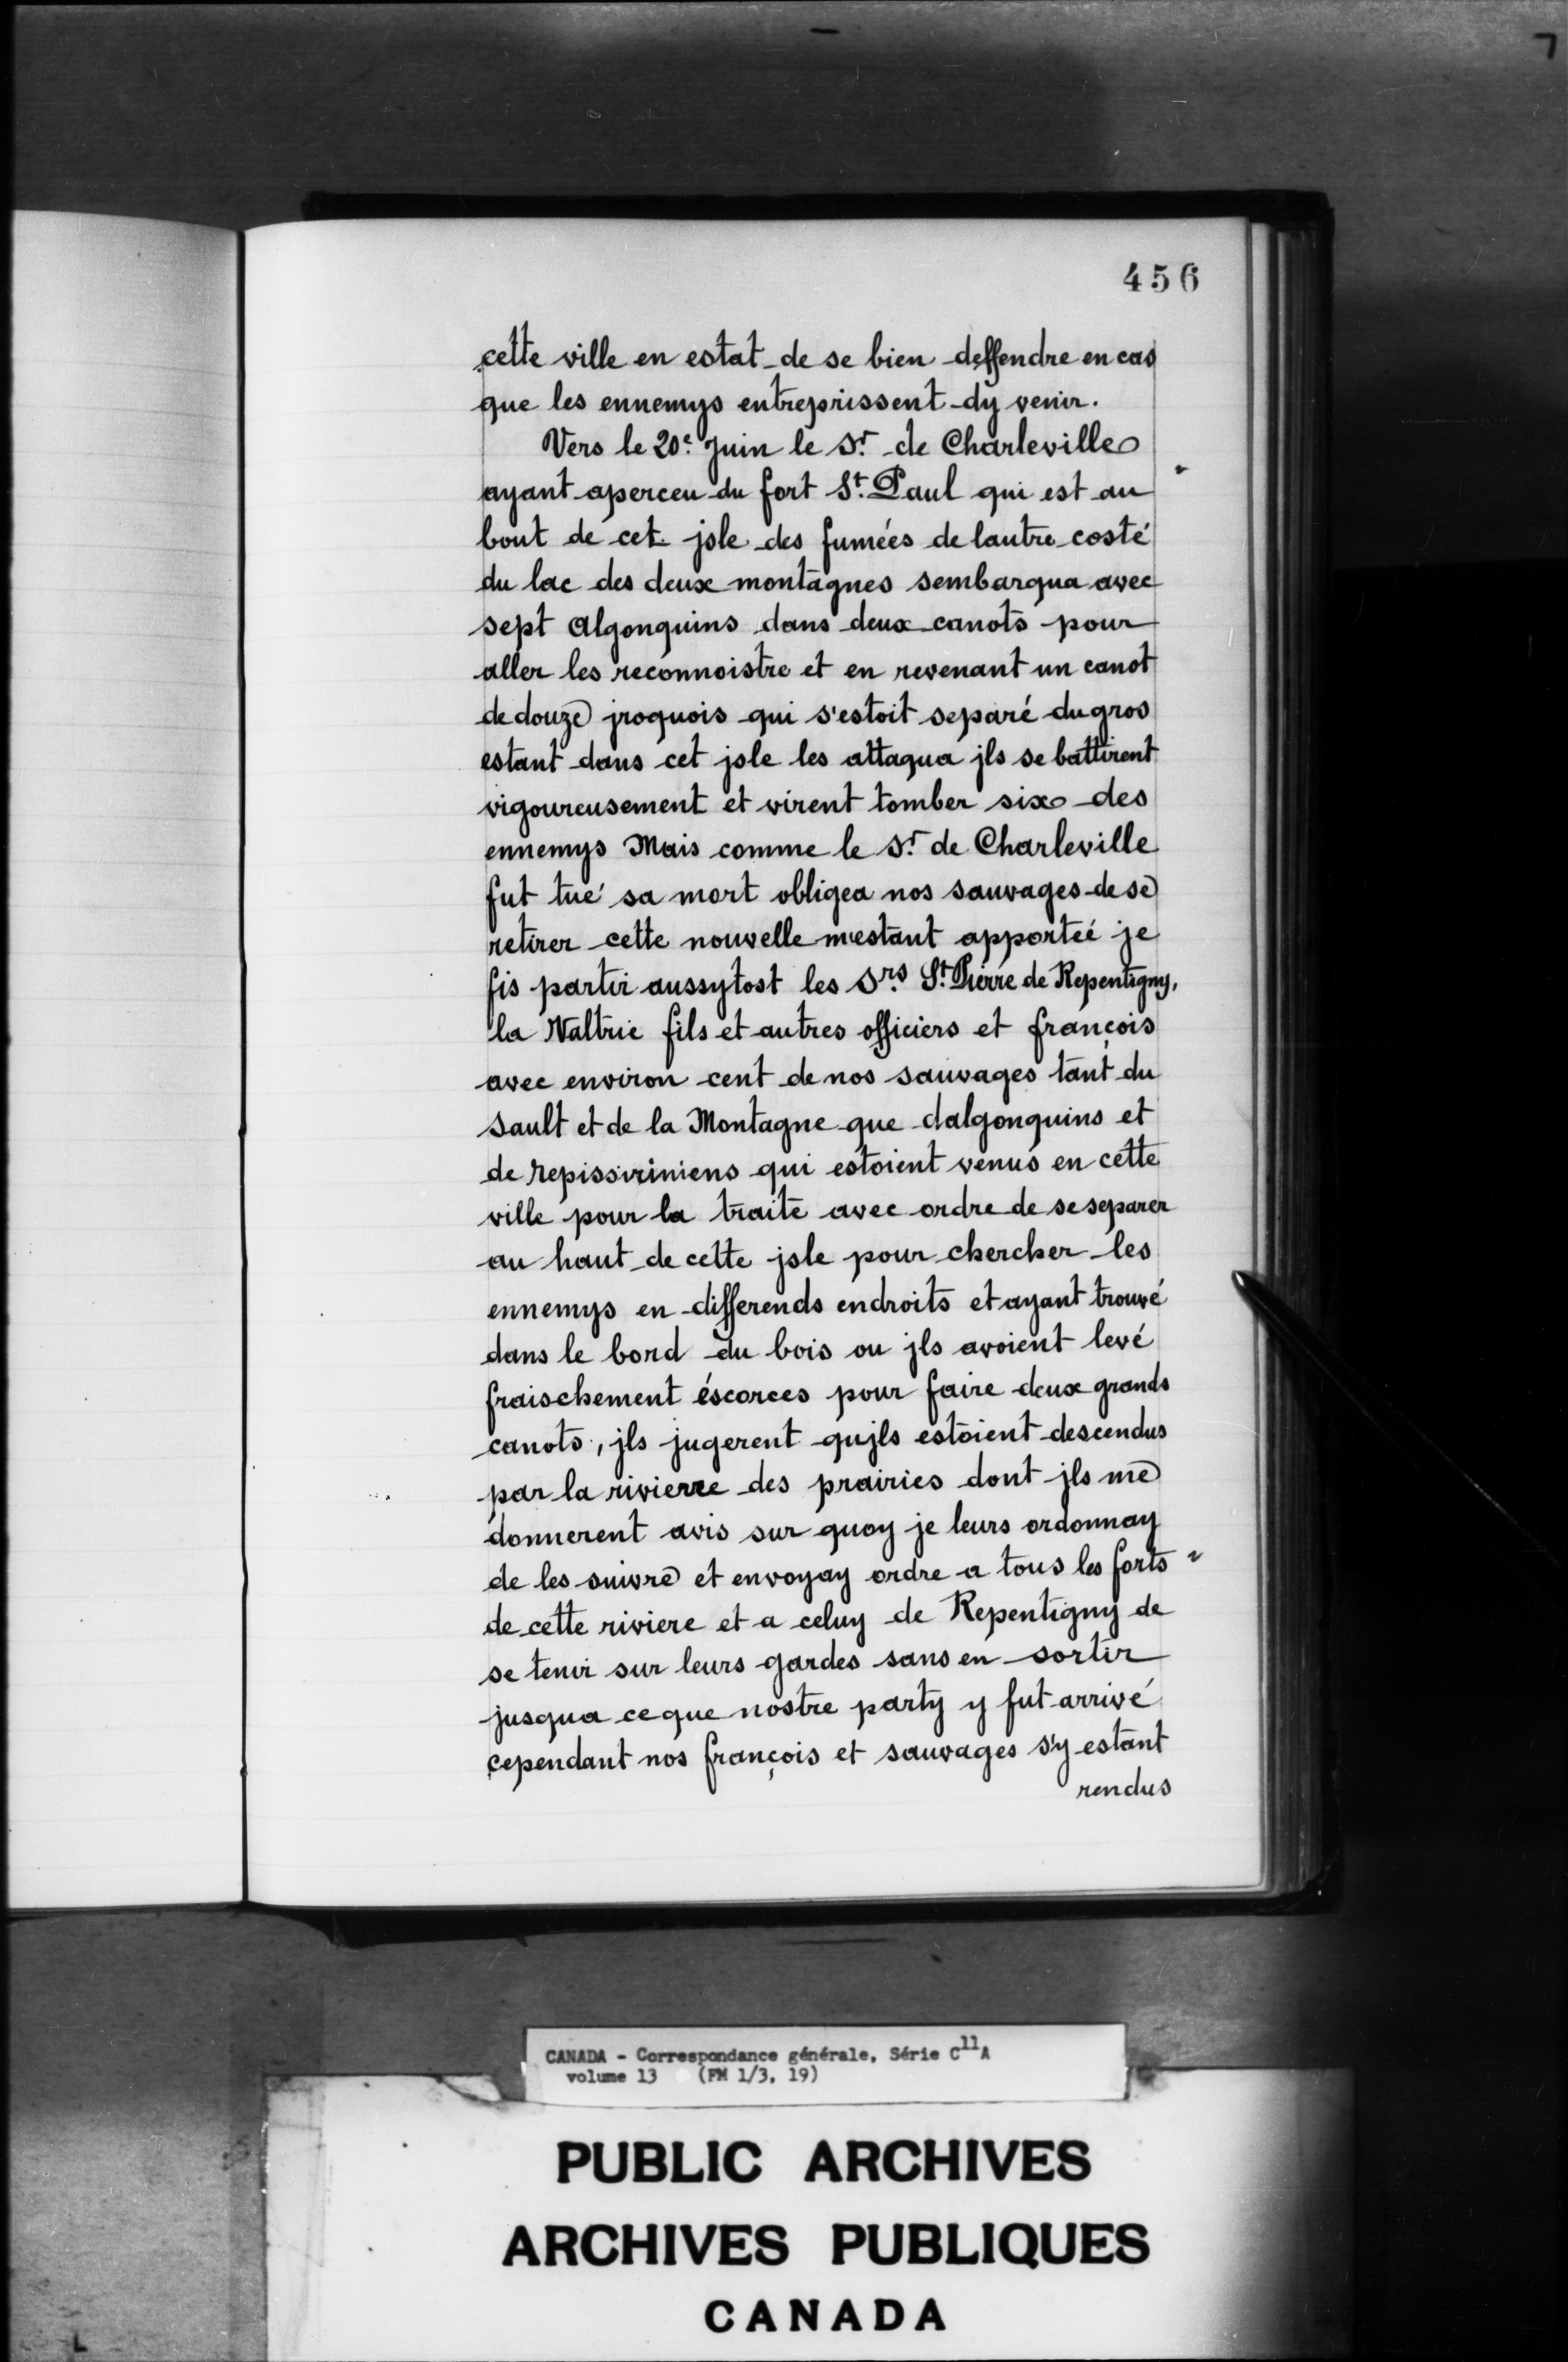 456
cette ville en estat de se bien deffendre en cas
que les ennemys entreprissent dy venir.
Vers le 20e. Juin le Sr. de Charleville
ayant aperceu du fort St. Paul qui est au
bout de cet jsle des fumées de lautre costé
du lac des deux montagnes sembarqua avec
sept algonquins dans deux canots pour
aller les reconnoistre et en revenant un canot
de douze jroquois qui s'estoit separé du gros
estant dans cet jsle les attaqua jls se battirent
vigoureusement et virent tomber six des
ennemys Mais comme le Sr. de Charleville
fut tué sa mort obligea nos sauvages de se
retirer cette nouvelle mestant apporteé je
fis partir aussytost les Srs. St. Pierre de Repentigny,
la Valtrie fils et autres officiers et françois
avec environ cent de nos sauvages tant du
sault et de la Montagne que dalgonquins et
de repissiriniens qui estoient venus en cette
ville pour la traite avec ordre de se separer
au haut de cette jsle pour chercher les
ennemys en differends endroits et ayant trouvé
dans le bord du bois ou jls avoient levé
fraischement éscorces pour faire deux grands
canots, jls jugerent qujls estoient descendus
par la rivierre des prairies dont jls me
donnerent avis sur quoy je leurs ordonnay
de les suivre et envoyay ordre a tous les forts
de cette riviere et a celuy de Repentigny de
se tenir sur leurs gardes sans en sortir
jusqua ce que nostre party y fut arrivé
cependant nos françois et sauvages s'y estant
rendus
CANADA - Correspondance générale, Série C11A
volume 13 (FM 1/3, 19)
PUBLIC ARCHIVES
ARCHIVES PUBLIQUES
CANADA